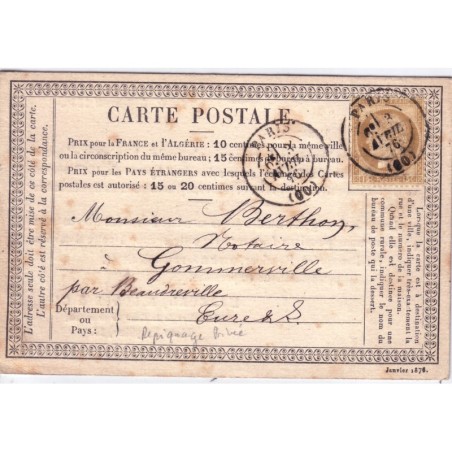 CARTE POSTALE.
PRIX pour la FRANCE et l'ALGÉRIE: 10 centimes pour la même ville
ou la circonscription du même bureau; 15 centimes de bureau à bureau.
PRIX pour les PAYS ÉTRANGERS avec lesquels l'échange des Cartes
postales est autorisé: 15 ou 20 centimes suivant la destination.
PARIS
(60)
PARIS
2
AVRIL
76
(60)
Monsieur Berthon,
Notaire
à Gommerville
par Beaudreville
Eure & L.
Département
ou
Pays:
Repiquage Privé
L'adresse seule doit être mise de ce côté de la carte.
L'autre côté est réservé à la correspondance.
Lorsque la carte est à destination
d'une ville, indiquer très-exactement la
rue et le numéro de la maison.
Quand elle est destinée pour une
commune rurale, indiquer le nom du
bureau de poste qui la dessert.
Janvier 1876.